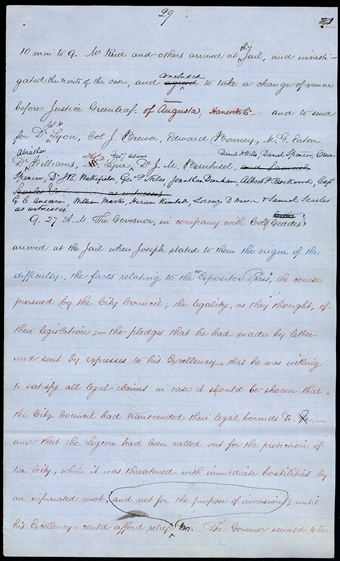 29
10 min to 9. Mr Reid and others arrived at the Jail, and investi-
gated the merits of the case, and agreed concluded to take a change of venue
before Justice Greenleaf. of Augusta, Hancock Co. - and to send
for Dr. Lyon, Col J Brewer, Edward Bonney, M. G. Eaton
Dr Williams, Dr J. M. Bernhisel, and Samuel
Daniel H. Wells, Daniel Spencer, Orson
Spencer, Dr. Thos. Wakefield, Geo. P. Stiles, Jonathan Dunham, Albert P. Rockwood, Capt
G. C. Ensign, William Marks, Hiram Kimball, Lorenzo D. Wasson, & Samuel Searles
as witnesses.
9.27 A.M. The Governor, in company with Col. Geddes
arrived at the Jail when Joseph stated to them the origin of the
difficulty, the facts relating to the "Expositor Press", the course
pursued by the City Council; the legality, as they thought, of
their legislation; - the pledges that he had made by letter
and sent by expresses to his Excellency, that he was willing
to satisfy all legal claims in case it should be shown that
the City Council had transcended their legal bounds &
and that the Legion had been called out for the protection of
the City, while it was threatened with immediate hostilities by
an infuriated mob, and not for the purpose of invasion, until
his Excellency could afford relief &c. The Governor seemed to be